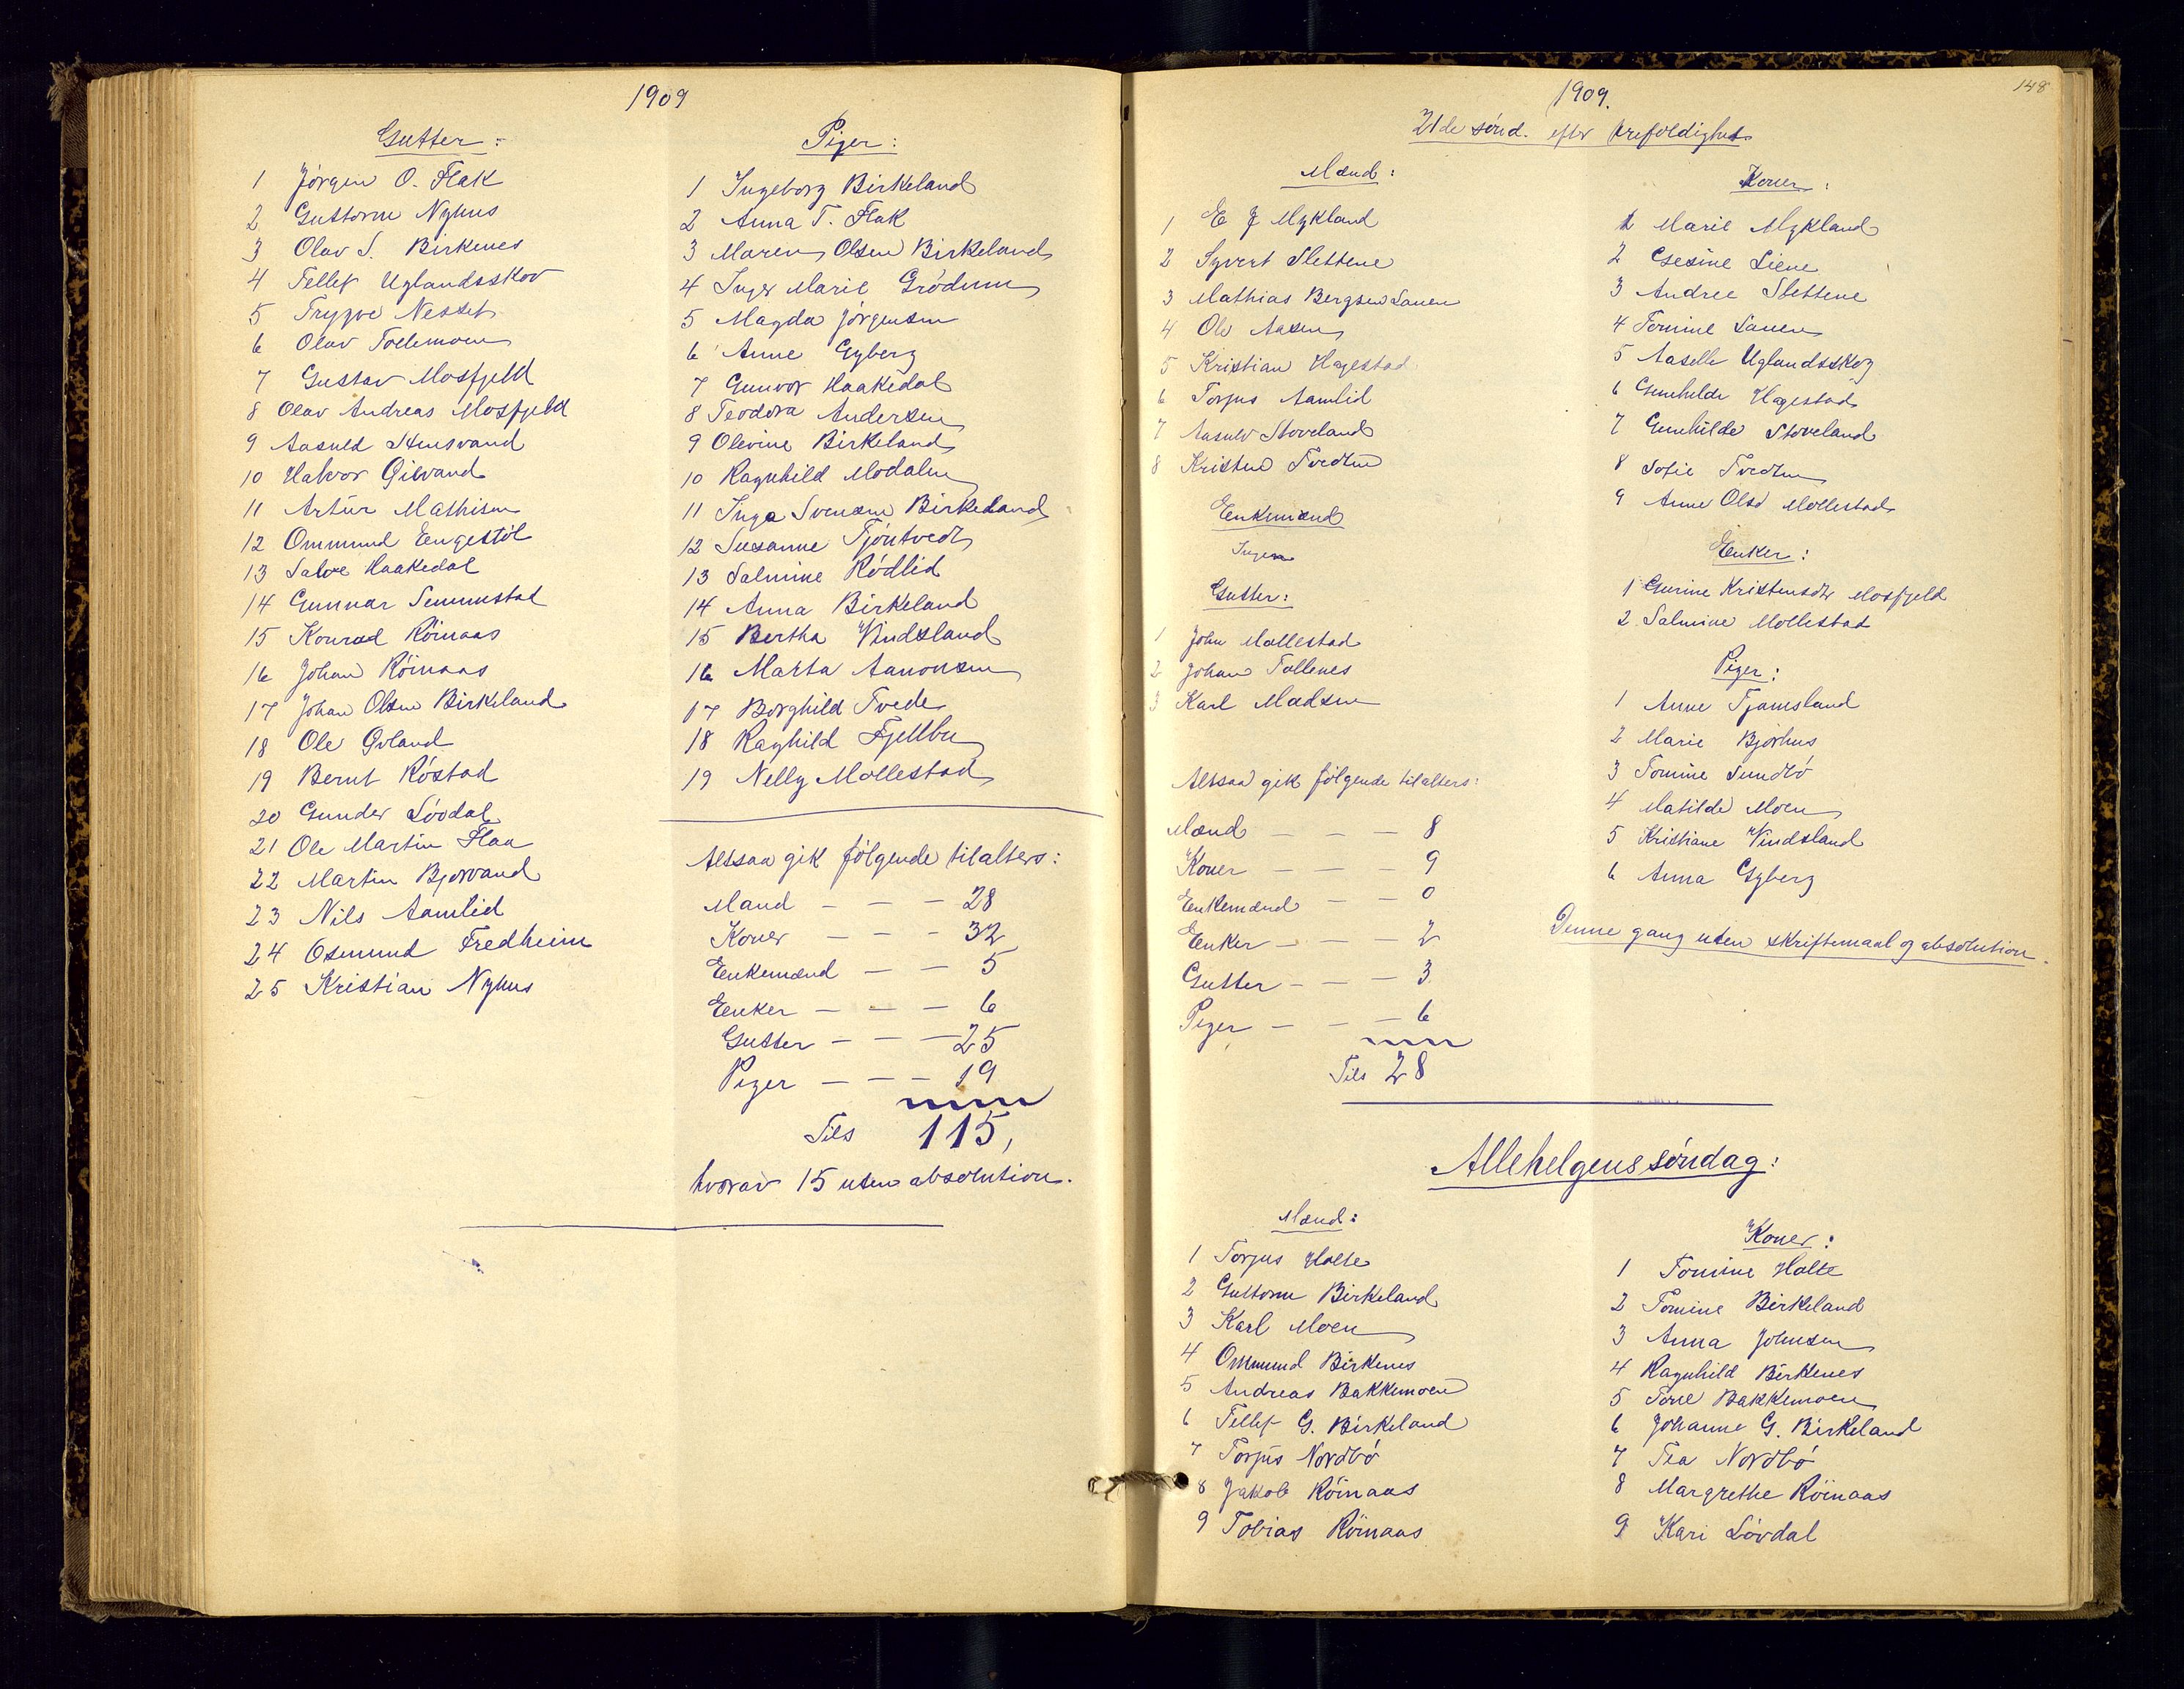 1909
Gutter:
1 Jörgen O. Flak
2 Guttorm Nyhus
3 Olav S. Birkenes
4 Tellef Uglandsskov
5 Trygve Nesset
6 Olav Tollemoen
7 Gustav Mosfjeld
8 Olav Andreas Mosfjeld
9 Aasuld
10 Halvor
11 Artur Mathisen
12 Ommund Engestöl
13 Salve Haakedal
14 Gunnar Senumstad
15 Konrad Röinaas
16 Johan Röinaas
17 Johan Olsen Birkeland
18 Ole
19 Bernt Röstad
20 Gunder Lövdal
21 Ole Martin Flaa
22 Martin Bjorvand
23 Nils Aamlid
24 Osmund Fredheim
25 Kristian Nyhus
Piger:
1 Ingeborg Birkeland
2 Anna T. Flak
3 Maren Olsen Birkeland
4 Inger Marie Grödum
5 Magda Jörgensen
6 Anne Gyberg
7 Gunvor Haakedal
8 Teodora Andersen
9 Olevine Birkeland
10 Ragnhild Modalen
11 Inga Svensen Birkeland
12 Susanne Tjöntvedt
13 Salmine Rödlid
14 Anna Birkeland
15 Bertha Vindsland
16 Marta Aanonsen
17 Borghild Tvede
18 Raghild Fjellbu
19 Nelly Mollestad
Altsaa gik fölgende tilalters:
Mand - - - 28
Koner - - - 32
Enkemænd - - 5
Enker - - - 6
Gutter - - - 25
Piger - - - 19
Tils 115,
hvorav 15 uten absolution.
148
1909.
21de sönd. efter trefoldighet
Mænd:
1 E J Mykland
2 Syvert Slettene
3 Mathias Bergsen Lauen
4 Ole Aasen
5 Kristian Hagestad
6 Torjus Aamlid
7 Aasulv Stoveland
8 Kristen Tvedten
Enkemænd
Ingen
Gutter:
1 John Mollestad
2 Johan Tollenes
3 Karl Madsen
Altsaa gik fölgende tilalters:
Mænd - - - 8
Koner - - - 9
Enkemænd - - 0
Enker - - - 2
Gutter - - - 3
Piger - - - 6
Tils 28
Koner:
1 Marie Mykland
2 Gesine Liene
3 Andree Slettene
4 Tomine Lauen
5 Aaselle Uglandsskog
6 Gunhilde Hagestad
7 Gunhilde Stoveland
8 Sofie Tvedten
9 Anne Olsd Mollestad
Enker:
1 Gurine Kristensdtr Mosfjeld
2 Salmine Mollestad
Piger:
1 Anne Tjomsland
2 Marie Bjorhus
3 Tomine Sundbö
4 Matilde Moen
5 Kristiane Vindsland
6 Anna Gyberg
Denne gang uten skriftemaal og absolution.
Allehelgenssöndag:
Mænd:
1 Torjus Holte
2 Guttorm Birkeland
3 Karl Moen
4 Ommund Birkenes
5 Andreas Bakkemoen
6 Tellef G. Birkeland
7 Torjus Nordbö
8 Jakob Röinaas
9 Tobias Röinaas
Koner:
1 Tomine Holte
2 Tomine Birkeland
3 Anna Johnsen
4 Ragnhild Birkenes
5 Torel Bakkemoen
6 Johanne G. Birkeland
7 Tea Nordbö
8 Margrethe Röinaas
9 Kari Lövdal